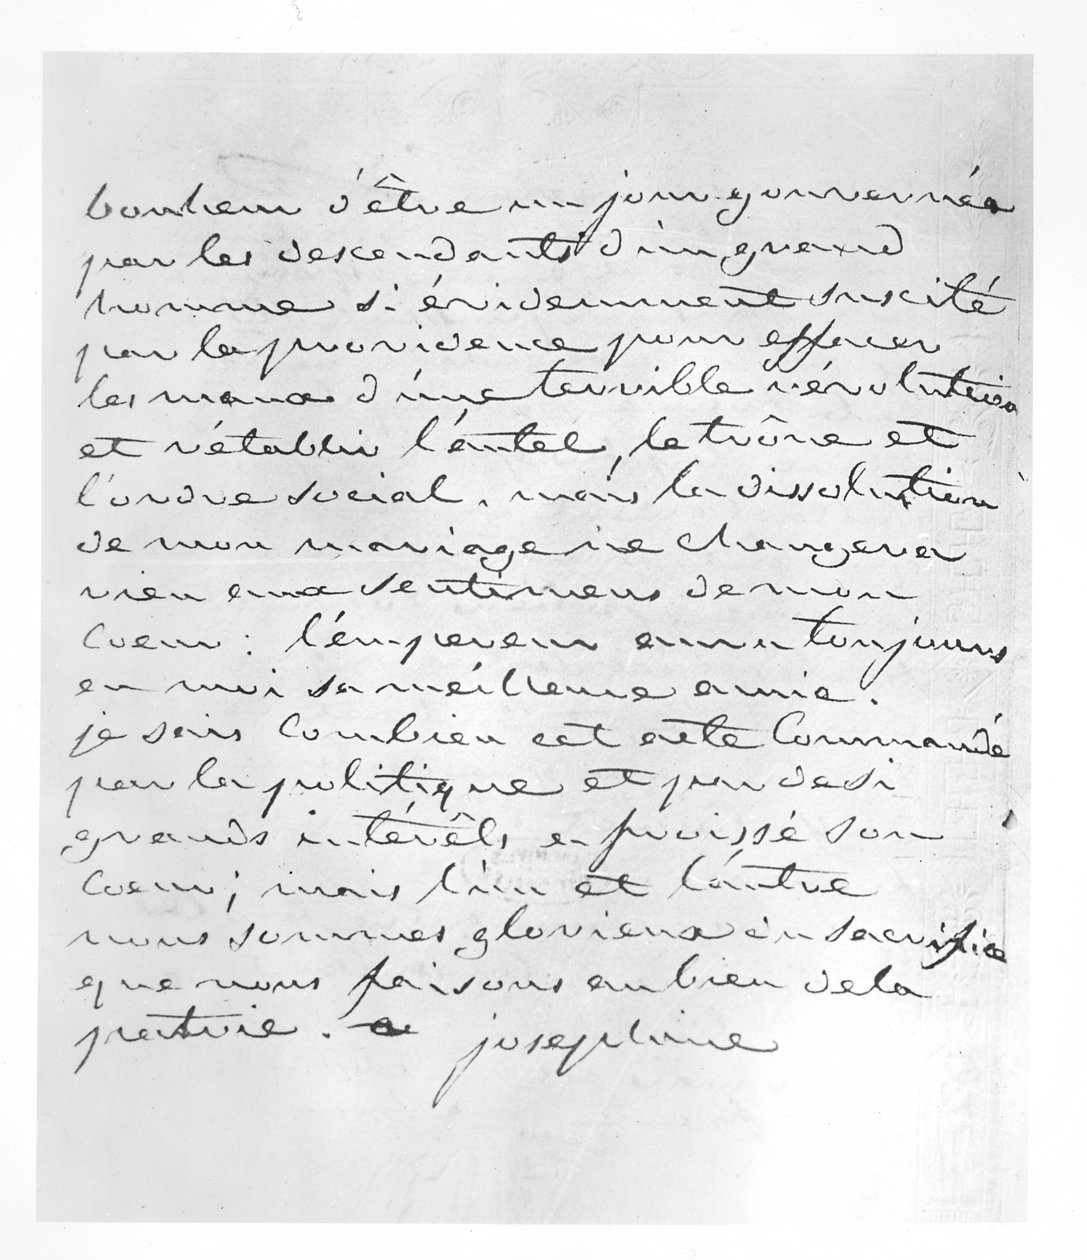 bonheur d'être un jour gouvernée
par les descendants d'un grand
homme si évidemment suscité
par la providence pour effacer
les maux d'une terrible révolution
et rétablir l'autel, le trône et
l'ordre social. mais la dissolution
de mon mariage ne changera
rien aux sentimens de mon
coeur: l'empereur aura toujours
en moi sa méilleure amie.
je sais combien cet acte commandé
par la politique et par de si
grands intérêts a froissé son
coeur; mais l'un et l'autre
nous sommes glorieux du sacrifice
que nous faisons au bien de la
patrie. josephine